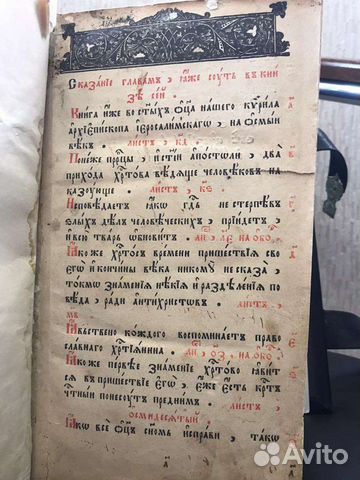 Сказанїе главамъ, ꙗже соуть въ кни
зѣ сей.
Книга иже во ст҃ыхъ ѻ҆ц҃а нашего кѵрила
архїепископа їеросалимскаго, на ѻсмыи
вѣкъ. листъ, к҃д.
Понеже прⷪ҇рцы, и ст҃їи апⷭ҇столи, два
прихода хрⷭ҇това вѣдѧще человѣкѡвъ на
казоующе. листъ, к҃є
Исповѣдаетъ ꙗкѡ гдⷭ҇ь не стерпѣвъ
ѕлыхъ дѣлъ человѣческихъ, прїидетъ,
и всю тварь ѡбновитъ. лⷭ҇и, л҃є на ѻбо,
Ꙗкоже хрⷭ҇тосъ времени пришествїѧ сво
егѡ и кончины вѣка никому не сказа,
токмѡ знаменїѧ нѣкїѧ и раздѣленїѧ по
вѣда, ради антихристовъ. листъ,
м҃ѣ
Ꙗвьствено кождого воспоминаетъ право
славнаго хрⷭ҇тїѧнина. лⷭ҇и, ѻ҃з, на ѻбо.
Ꙗкоже первѣе знаменїе хрⷭ҇тово ꙗвит
сѧ въ пришествїе егѡ, еже есть крⷭ҇тъ
чⷭ҇тныи понесоутъ предним. листъ,
ѻсмидесѧтый.
Ꙗкѡ всѣ ѻ҆ц҃ъ сн҃омъ исправи, такѡ
а҃
Avito